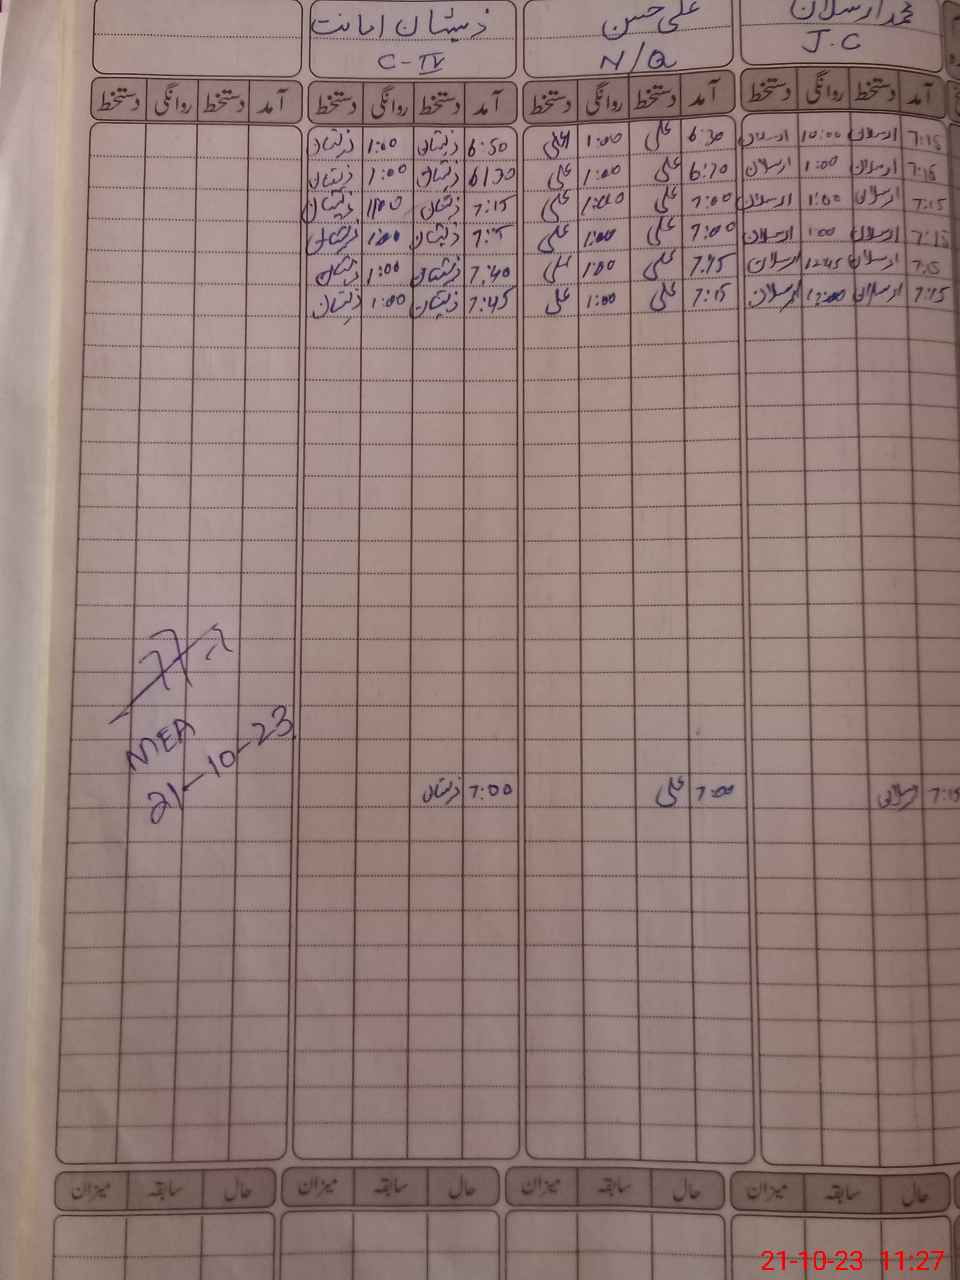 محمد ارسلان علی حسن ذیشان امانت
J.C N/Q C-IV
آمد دستخط روانگی دستخط آمد دستخط روانگی دستخط آمد دستخط روانگی دستخط آمد دستخط روانگی دستخط
7:15 ارسلان 10:00 ارسلان 6:30 علی 1:00 علی 6:50 ذیشان 1:00 ذیشان
7:15 ارسلان 1:00 ارسلان 6:30 علی 1:00 علی 6:30 ذیشان 1:00 ذیشان
7:15 ارسلان 1:00 ارسلان 7:00 علی 1:00 علی 7:15 ذیشان 1:00 ذیشان
7:15 ارسلان 1:00 ارسلان 7:00 علی 1:00 علی ذیشان 1:00 ذیشان
7:15 ارسلان 12:45 ارسلان علی 1:00 علی 7:40 ذیشان 1:00 ذیشان
7:15 ارسلان ارسلان 7:15 علی 1:00 علی 7:45 ذیشان 1:00 ذیشان
MEA
21-10-23
7:15 ارسلان 7:00 علی 7:00 ذیشان
حال سابقہ میزان حال سابقہ میزان حال سابقہ میزان حال سابقہ میزان
21-10-23 11:27